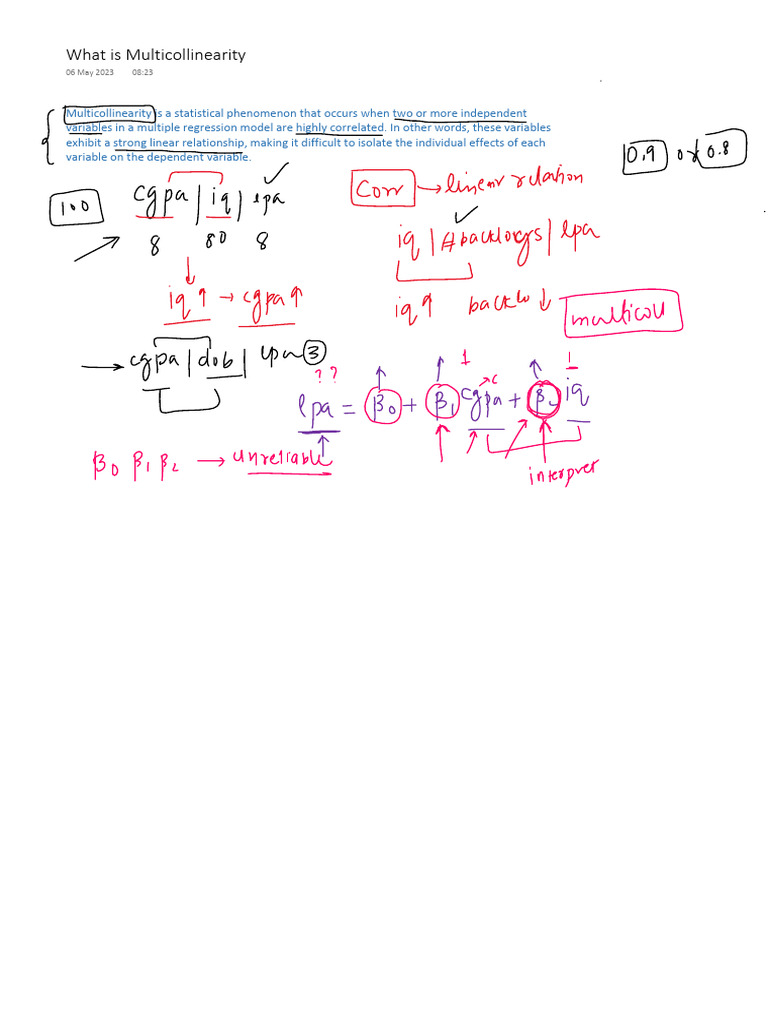 What is Multicollinearity
06 May 2023 08:23
Multicollinearity is a statistical phenomenon that occurs when two or more independent
variables in a multiple regression model are highly correlated. In other words, these variables
exhibit a strong linear relationship, making it difficult to isolate the individual effects of each
variable on the dependent variable.
0.9 or 0.8
100
cgpa | iq | lpa
8 80 8
Corr → linear relation
iq | #backlogs | lpa
iq ↑ → cgpa ↑
iq ↑ backlo ↓
multicoll
cgpa | dob | lpa 3
? ?
1 1
lpa = β0 + β1 cgpa + β2 iq
β0 β1 β2 → unreliable
interpret